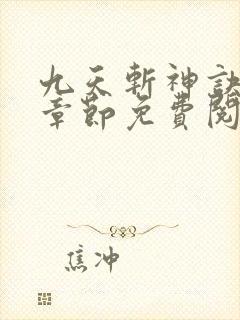 九天斬神訣
章節免費閱
焦冲